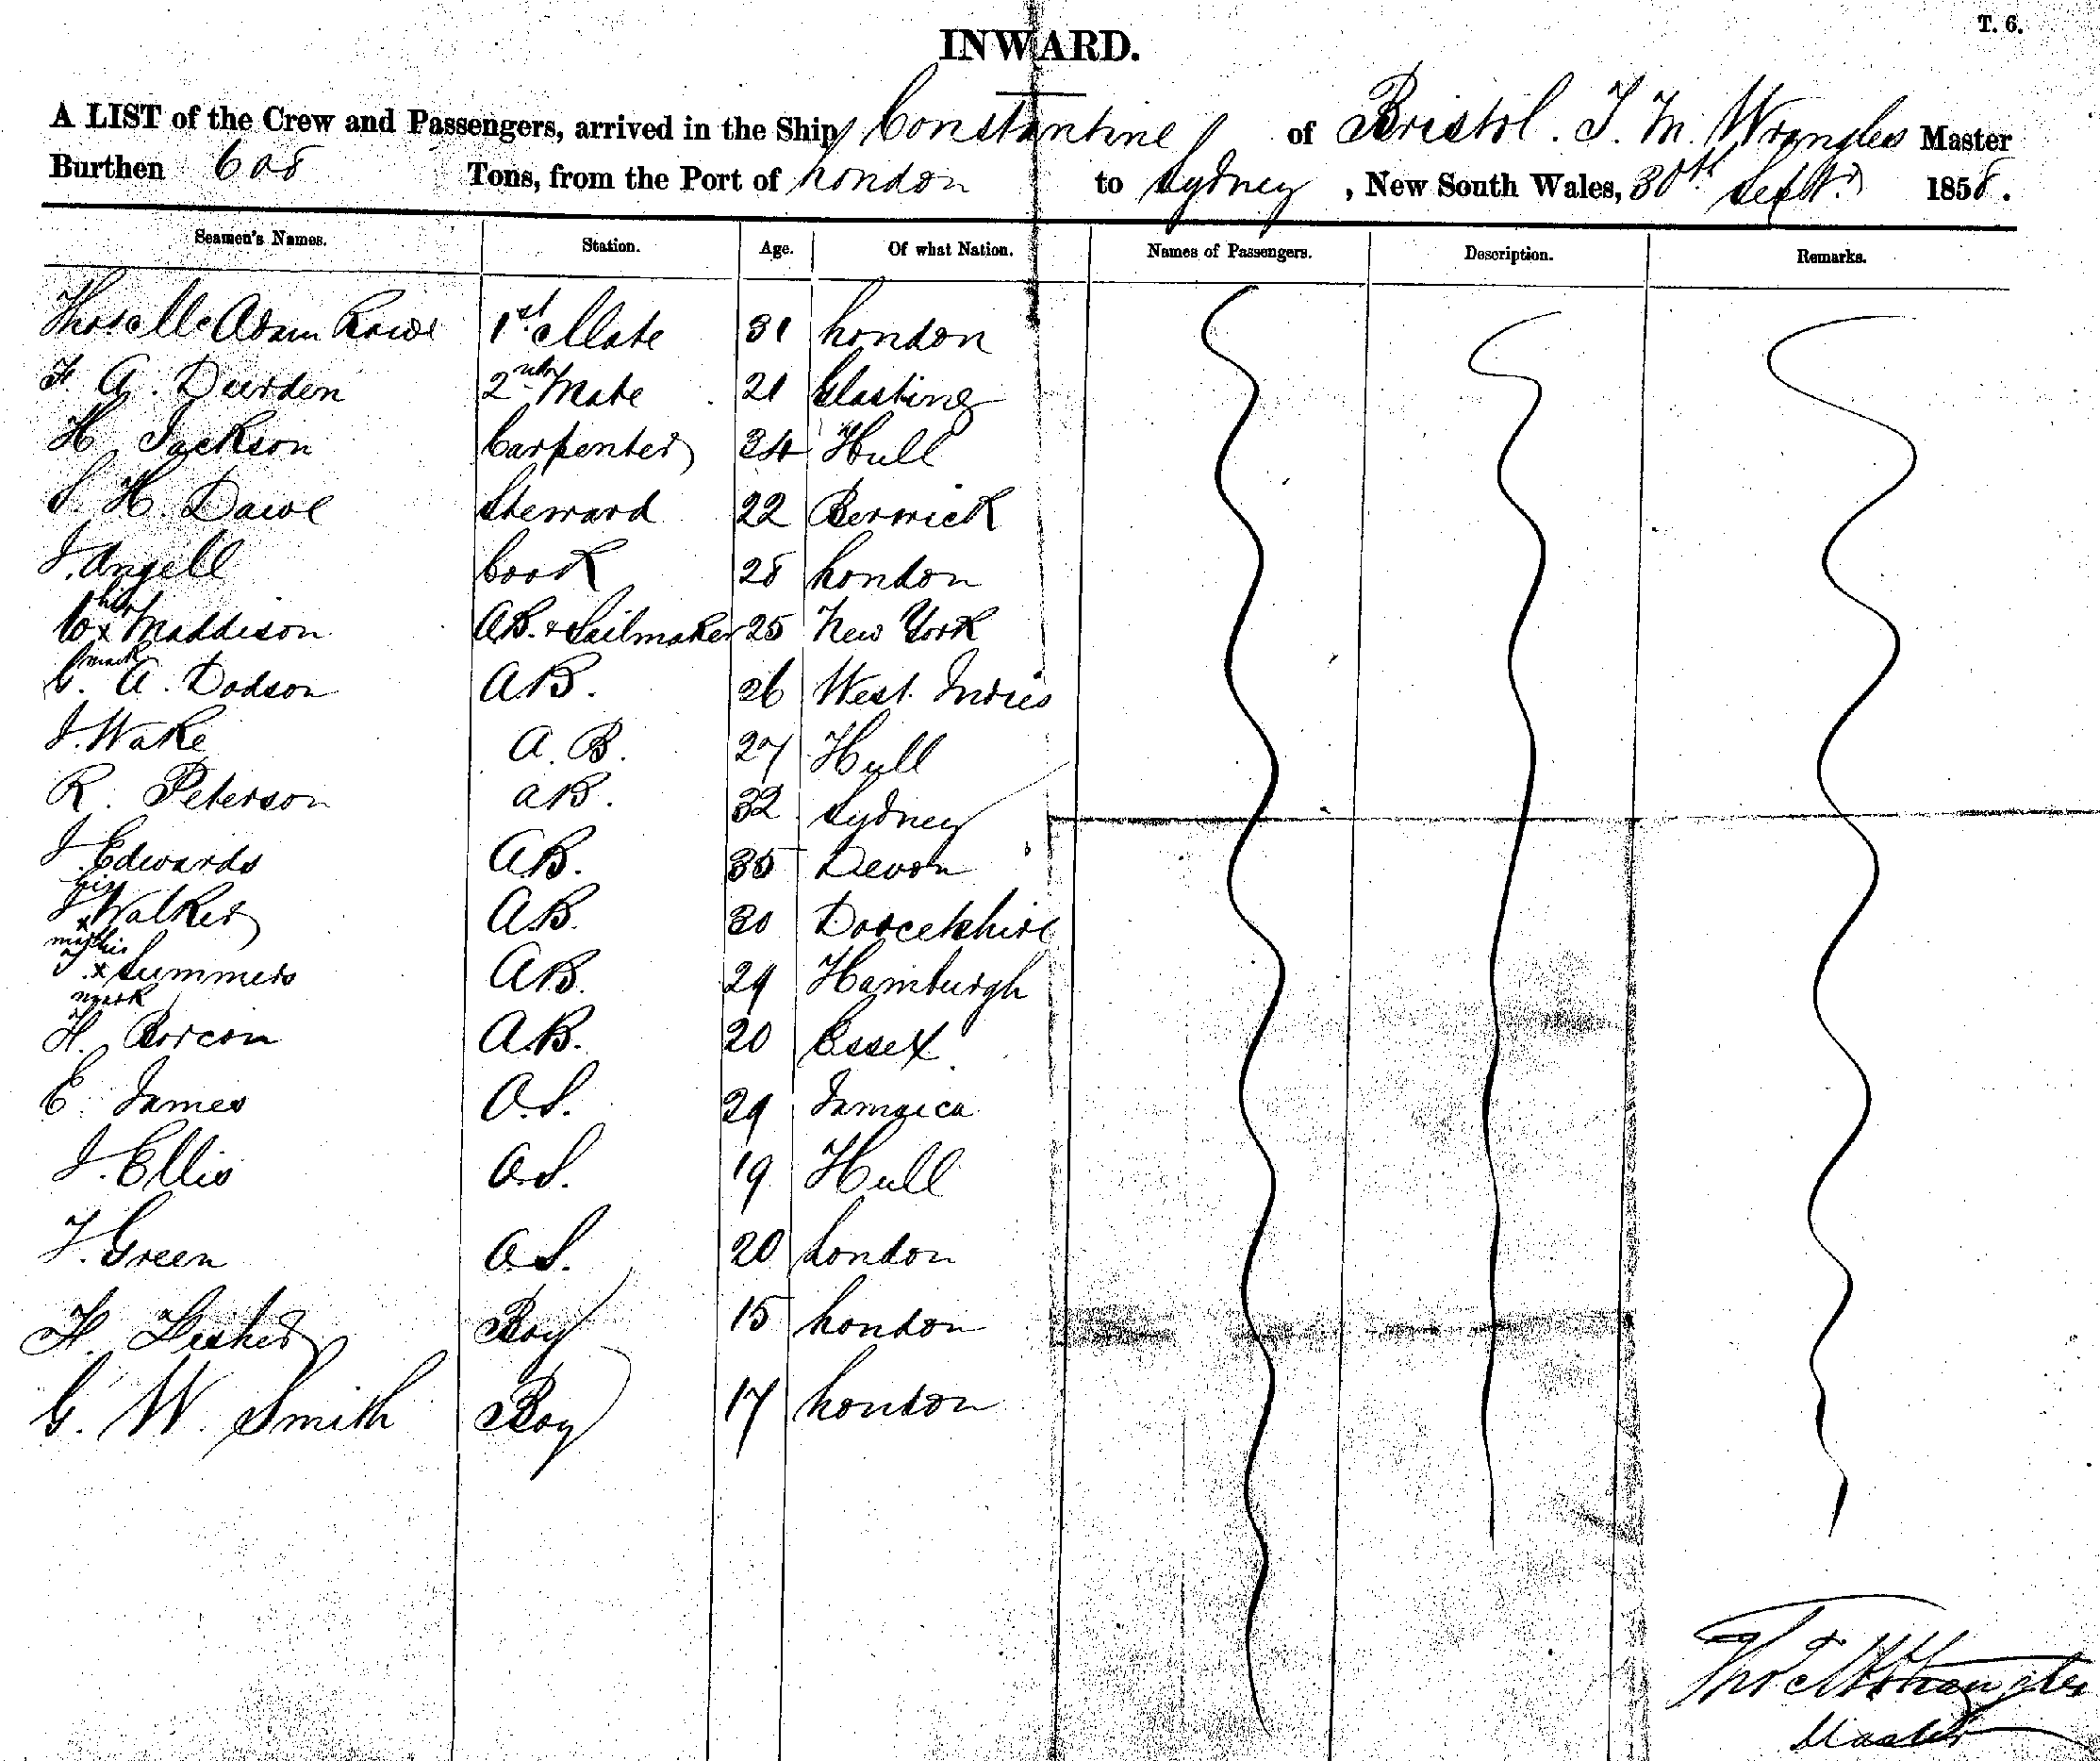 T. 6.
INWARD.
A LIST of the Crew and Passengers, arrived in the Ship Constantine of Bristol. T. M. Wrangles Master
Burthen 608 Tons, from the Port of London to Sydney, New South Wales, 30th Septr 1858.
Seamen's Names. Station. Age. Of what Nation. Names of Passengers. Description. Remarks.
Adam 1st Mate 31 London
A. Durden 2nd Mate 21
H Jackson Carpenter 34 Hull
S. H. Dawe Steward 22 Berwick
J. Angell Cook 28 London
his
x Maddison AB. & Sailmaker 25 New York
mark
C. A. Dodson AB. 26 West Indies
J. Wake A. B. 27 Hull
R. Peterson AB. 32 Sydney
J. Edwards AB. 35 Devon
his
J x Walker AB. 30 Dorcetshire
mark his
J. x Summers AB. 29 Hamburgh
mark
H. AB. 20 Essex
E. James O.S. 29 Jamaica
J. Ellis O.S. 19 Hull
T. Green O.S. 20 London
H. Fisher Boy 15 London
G. W. Smith Boy 17 London
Master